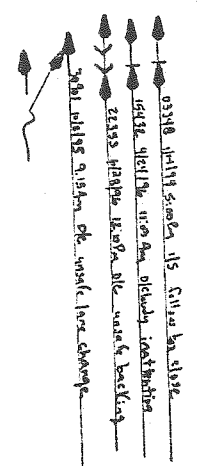 03348 1/14/94 5:00Pm I/S follow too close
15432 4/24/96 11:03 Am D/cloudy inattention
22353 4/28/96 12:10Pm D/c unsafe backing
10/8/95 9:15Am D/c unsafe lane change